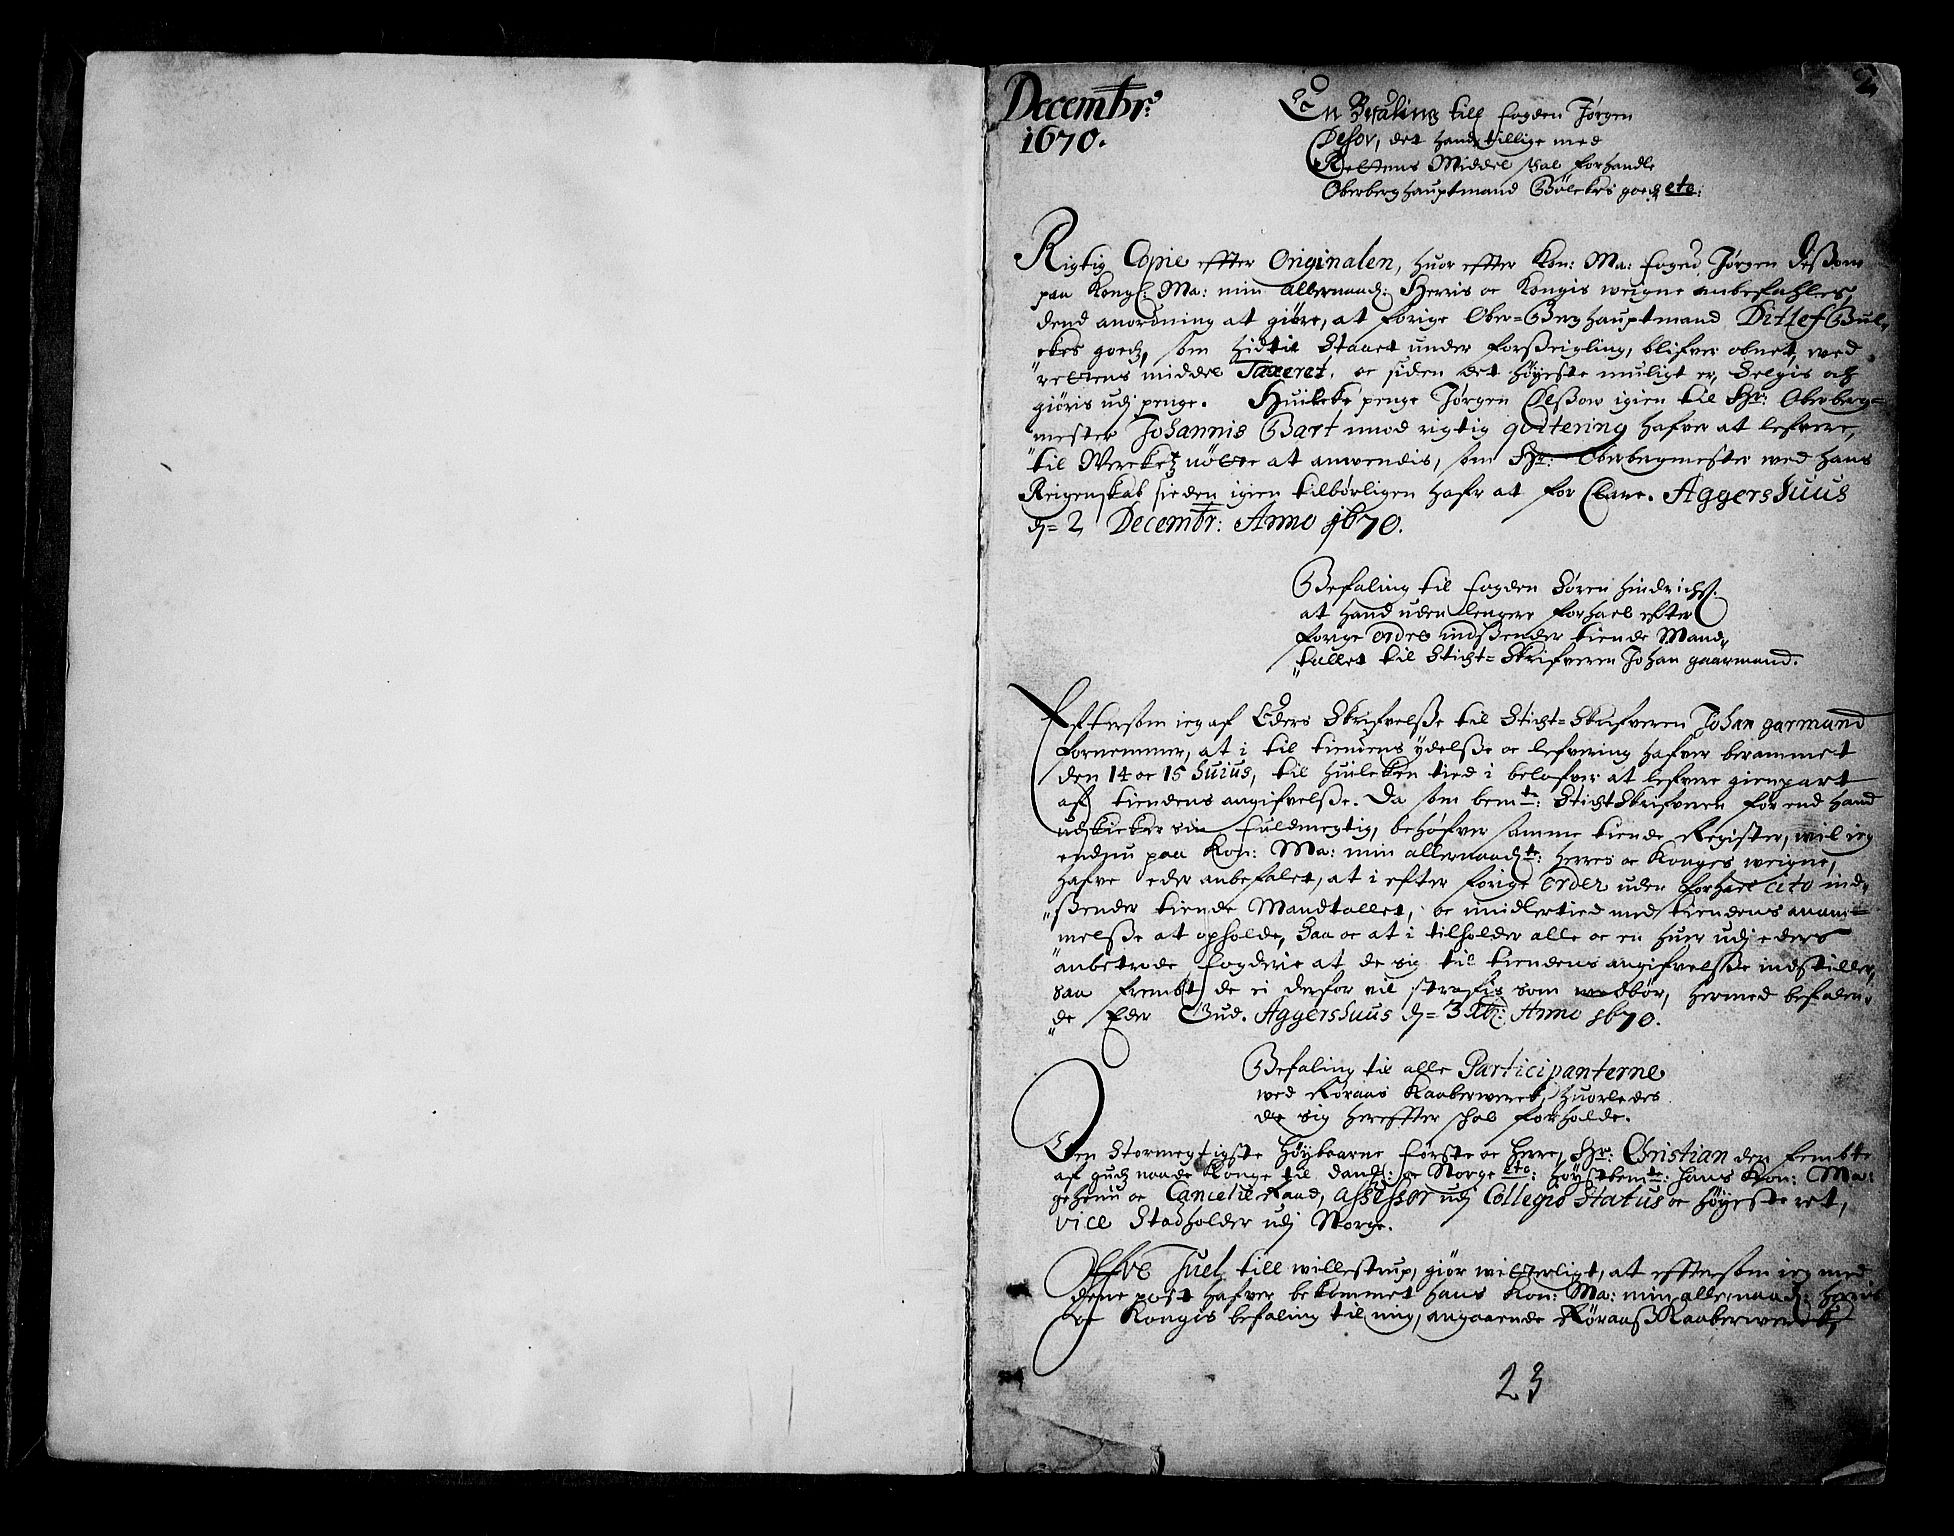 2
Decembr:
1670.
En Befaling till fogden Jørgen
Desou, det hand tillige med
Rettens Middel skal forhandle
Oberberghauptmand Bölekes goedz etc:
Rigtig Copie effter Originalen, huor effter Kon: Ma: foged Jørgen Dessow
paa Kongl: Ma: min allernaad: Herris oc Kongis weigne anbefahles,
dend anordning at giöre, at forige Ober=Berghauptmand Ditlef Bül,,
,,ekes goedz, som hidtil staaet under forseigling, blifver obnet, wed
rettens middel Taxeret, oc siden det höyeste muligt er, selgis och
giöris udj penge. Huilcke penge Jørgen Dessow igien til Hr: Oberberg=
mester Johannis Bart imod rigtig qvitering hafver at lefvere,
til Werketz nötte at anwendis, som Hr: Oberbergmester med hans
Reigenskab sieden igien tilbörligen hafr at forclare. Aggershuus
dn= 2 Decembr: Anno 1670.
Befaling til fogden Sören Hindrichs.
at hand uden lengere forhael efter
forige ordes indsender tiende Mand,,
,,tallet til Sticht=Skrifveren Johan gaarmand.
Eftersom ieg af Eders Skrifvelse til Sticht=Skrifveren Johan garmand
fornemmer, at i til tiendens ydelse oc lefvering hafver berammet
den 14 oc 15 huius, til huilcken tied i belofver at lefvere gienpart
aff tiendens angifvelse. Da som bemte: Stichtskrifveren for end hand
udskicker sin fuldmegtig, behöfver samme tiende Register, wil ieg
endnu paa Kon: Ma: min allernaadte: Herres oc Konges weigne,
hafve eder anbefalet, at i efter forige order uden forhael cito ind,,
,,sender tiende Mandtallet, oc imidlertied med tiendens annam=
melse at opholde, saa oc at i tilholder alle oc en huer udj eders
anbetrode fogderie at de sig til tiendens angifvelse indstiller,
saa frembt de ei derfor vil straffis som wedbör, hermed befalen,,
,,de Eder Gud. Aggershuus dn= 3 Xbr: Anno 1670.
Befaling til alle Participanterne
wed Röraas Kaaberwerck, huorledes
de sig hereffter skal forholde.
Den Stormegtigste Höybaarne förste oc Herre, Hr: Christian den fembte
af gudz naade Konge til Danm: oc Norge etc: höystbemte: hans Kon: Ma:
geheim oc Cancelie Raad, Assessor udj Collegio Status oc höyeste ret,
vice Stadholder udj Norge.
Offve Juel till willestrup, giör witterligt, at effter som ieg med
dene post hafver bekommet hans Kon: Ma: min allernaad: Herris
oc Kongis befaling til mig, angaaende Röraas Kaaberwerck,
23